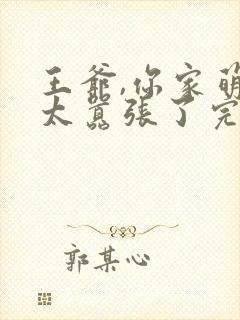 王爺,你家萌
太囂張了完
郭某心